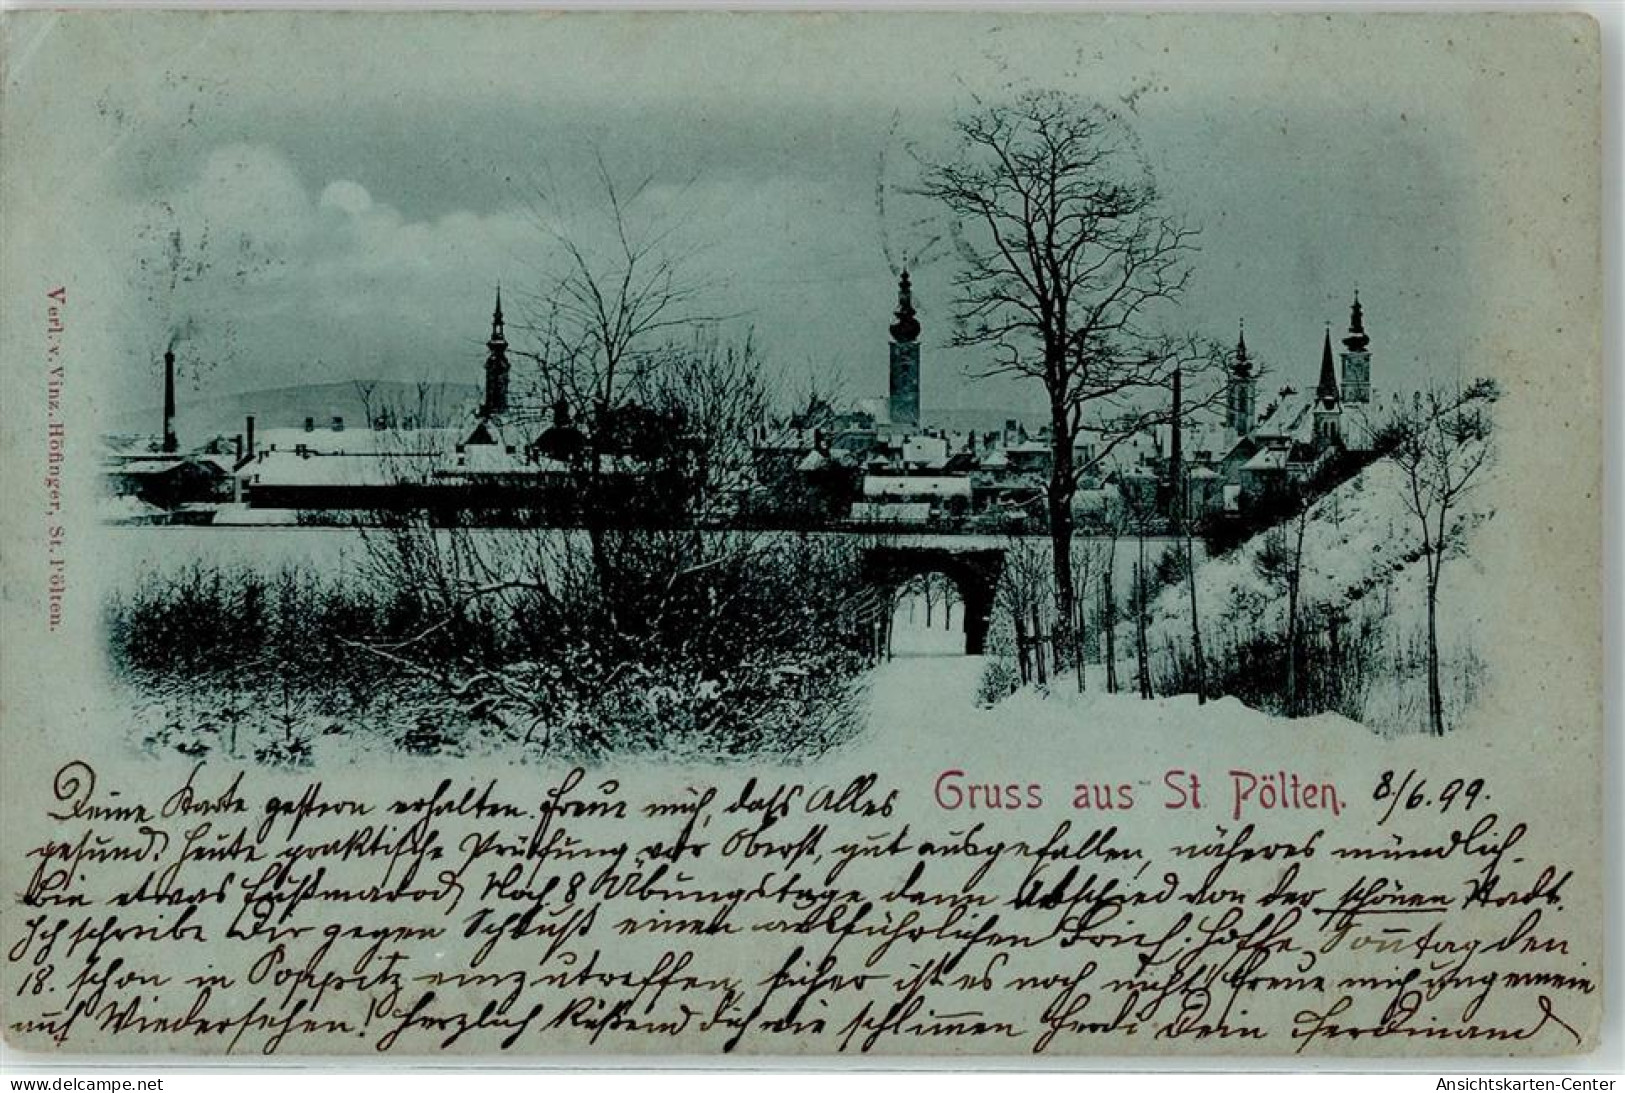 Verl. v. Vinz. Höfinger, St. Pölten.
Gruss aus St Pölten. 8/6.99.
Deine Karte gestern erhalten. Freue mich, dass Alles
gesund. Heute praktische Prüfung vor Oberst, gut ausgefallen, näheres mündlich.
Bin etwas Noch 8 Übungstage dann Abschied von der schönen Stadt.
Ich schreibe Dir gegen Schluß einen ausführlichen Brief. Hoffe Sonntag den
18. schon in einzutreffen, sicher ist es noch nicht. Freue mich ungemein
auf Wiedersehen! Herzlich Küßend Dich wie Dein Ferdinand
delcampe.net
Ansichtskarten-Center